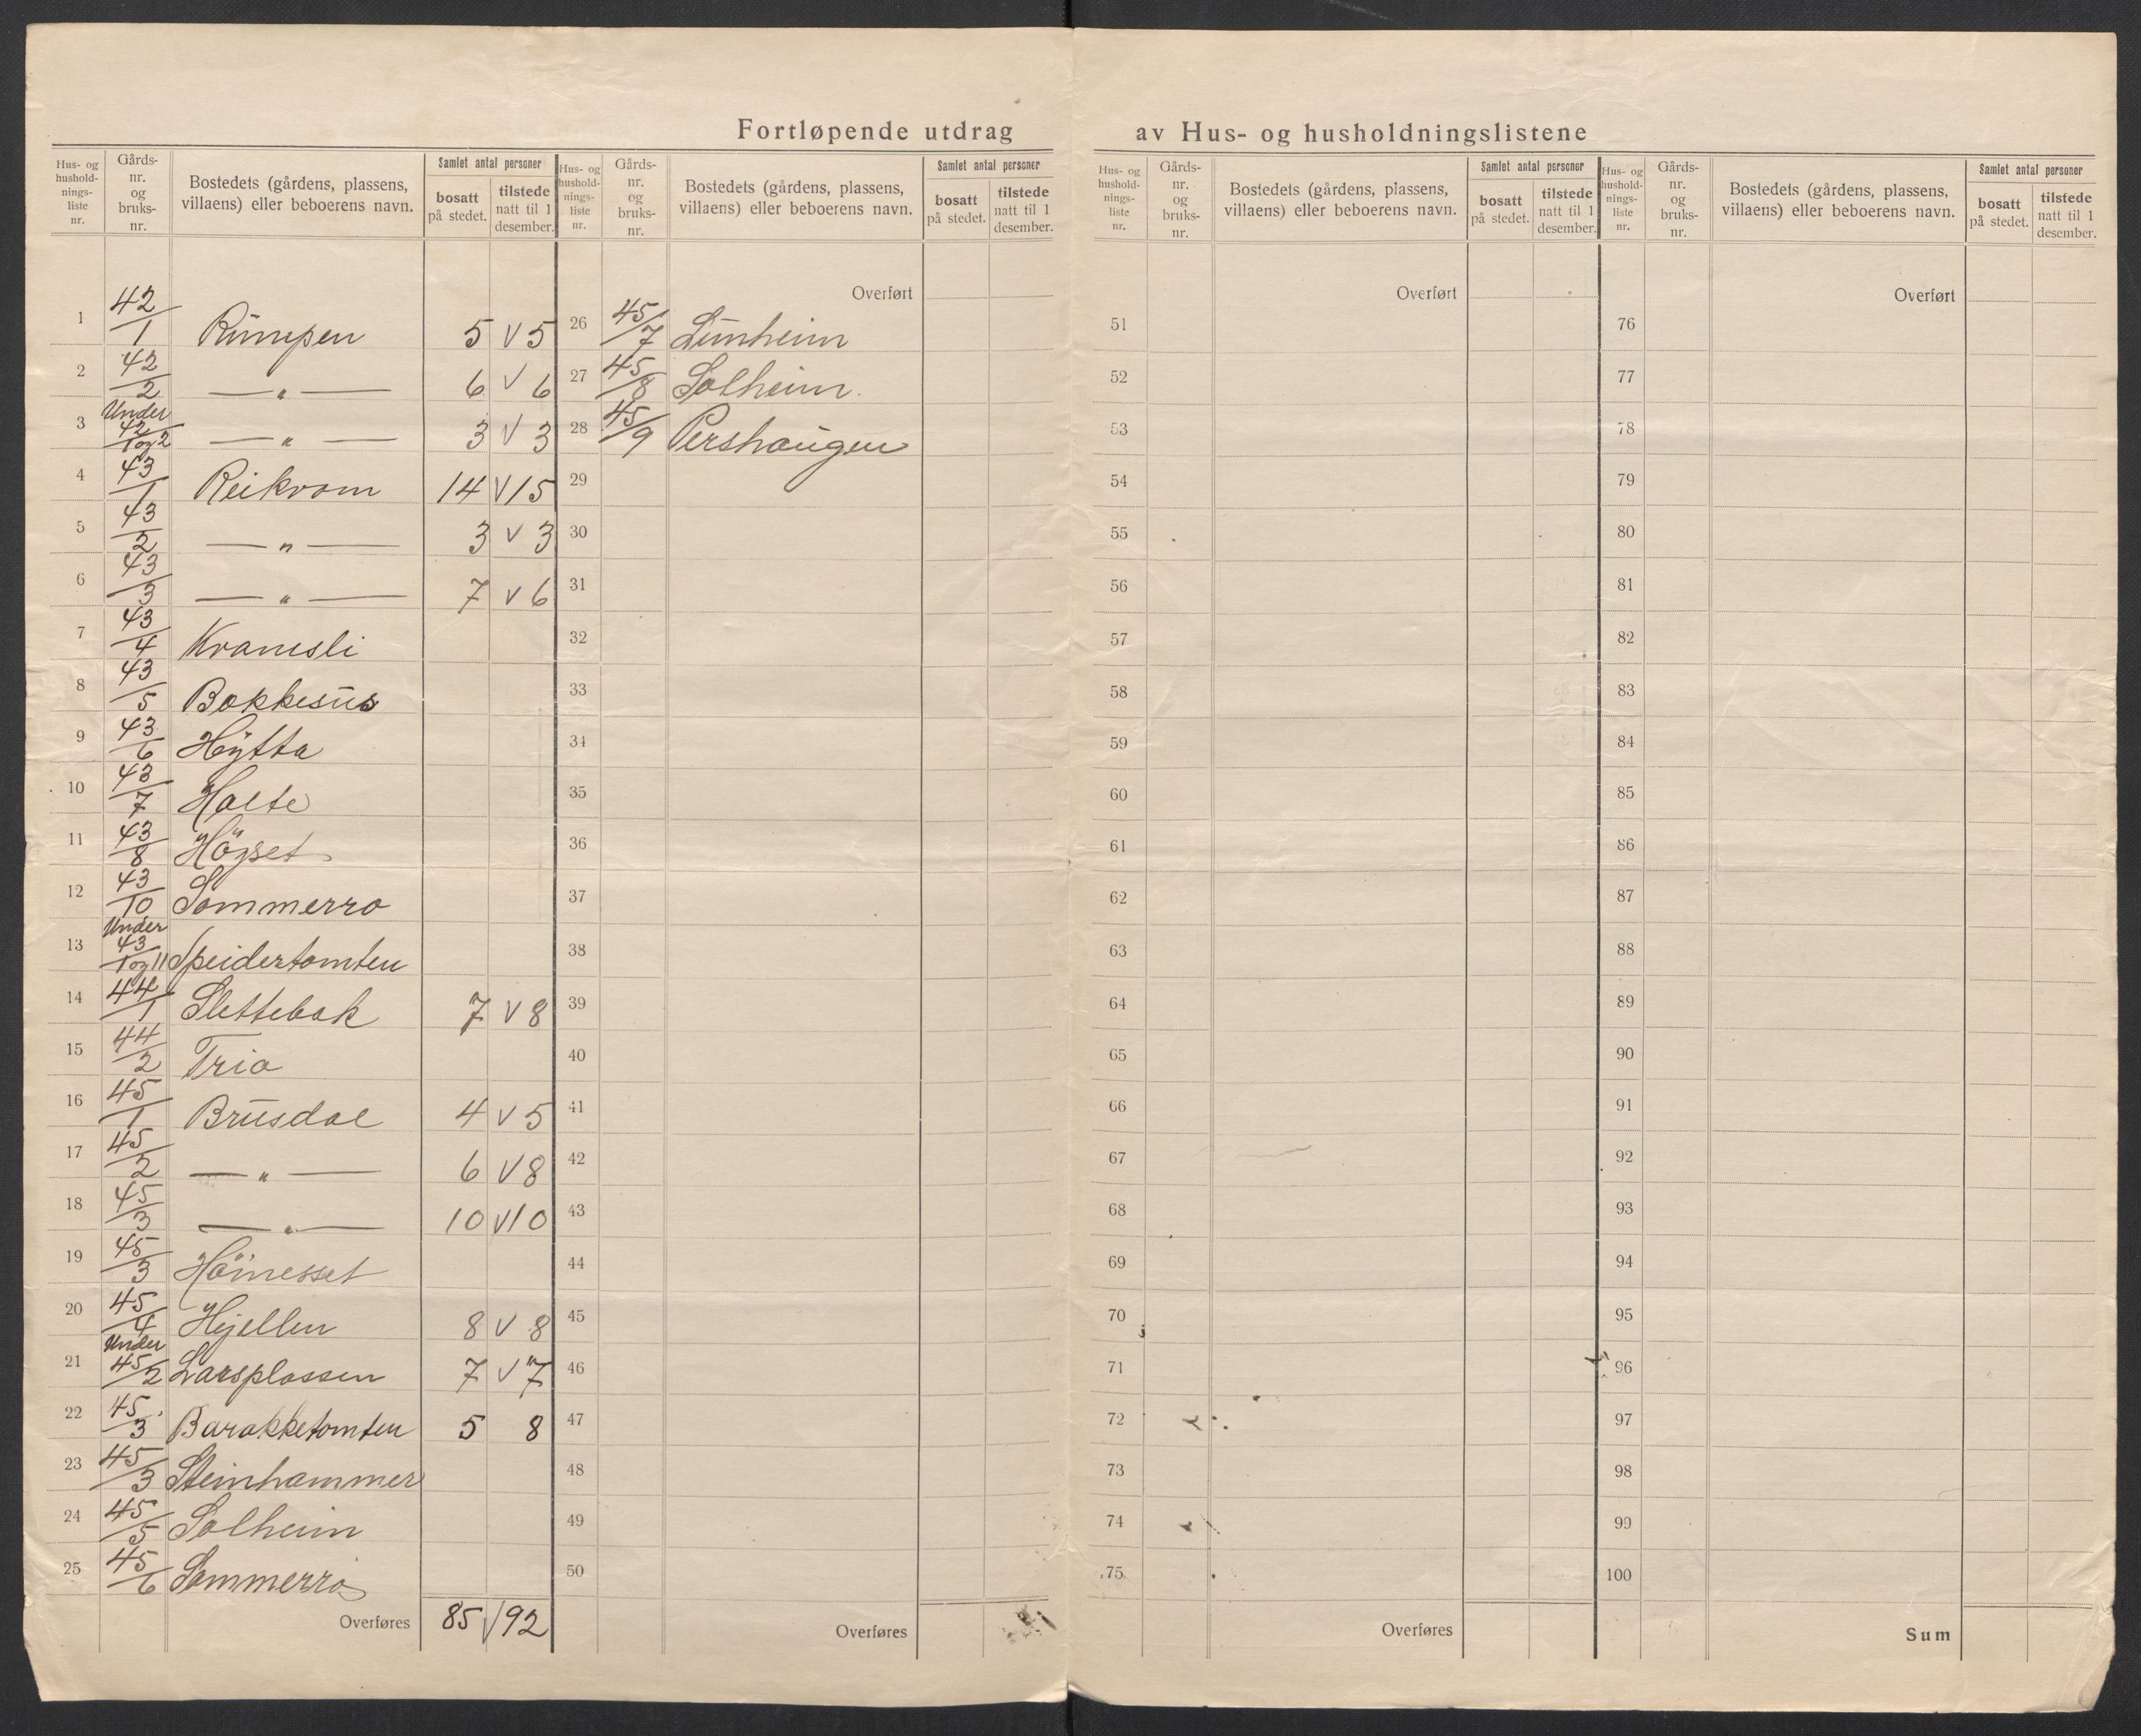 Fortløpende utdrag av Hus- og husholdningslistene
Hus- og hushold- nings- liste nr. | Gårds- nr. og bruks- nr. | Bostedets (gårdens, plassens, villaens) eller beboerens navn. | Samlet antal personer | bosatt på stedet. | tilstede natt til 1 desember.
Hus- og hushold- nings- liste nr. | Gårds- nr. og bruks- nr. | Bostedets (gårdens, plassens, villaens) eller beboerens navn. | Samlet antal personer | bosatt på stedet. | tilstede natt til 1 desember.
Hus- og hushold- nings- liste nr. | Gårds- nr. og bruks- nr. | Bostedets (gårdens, plassens, villaens) eller beboerens navn. | Samlet antal personer | bosatt på stedet. | tilstede natt til 1 desember.
Hus- og hushold- nings- liste nr. | Gårds- nr. og bruks- nr. | Bostedets (gårdens, plassens, villaens) eller beboerens navn. | Samlet antal personer | bosatt på stedet. | tilstede natt til 1 desember.
1 42/1 Rumpen 5 V 5
2 42/2 —"— 6 V 6
3 Under 42/1 og 2 —"— 3 V 3
4 43/1 Reikvam 14 V 15
5 43/2 —"— 3 V 3
6 43/3 —"— 7 V 6
7 43/4 Kvamsli
8 43/5 Bakkesus
9 43/6 Hytta
10 43/7 Holte
11 43/8 Högset
12 43/10 Sommerro
13 Under 43/1 og 11 Speidertomten
14 44/1 Slettebak 7 V 8
15 44/2 Trio
16 45/1 Brusdal 4 V 5
17 45/2 —"— 6 V 8
18 45/3 —"— 10 V 10
19 45/3 Höinesset
20 45/4 Hjellen 8 V 8
21 Under 45/2 Larsplassen 7 V 7
22 45/3 Barakketomten 5 8
23 45/3 Steinhammer
24 45/5 Solheim
25 45/6 Sommerro
Overføres 85 V 92
Overført
26 45/7 Lunheim
27 45/8 Solheim.
28 45/9 Pershaugen
29
30
31
32
33
34
35
36
37
38
39
40
41
42
43
44
45
46
47
48
49
50
Overføres
Overført
51
52
53
54
55
56
57
58
59
60
61
62
63
64
65
66
67
68
69
70
71
72
73
74
75
Overføres
Overført
76
77
78
79
80
81
82
83
84
85
86
87
88
89
90
91
92
93
94
95
96
97
98
99
100
Sum